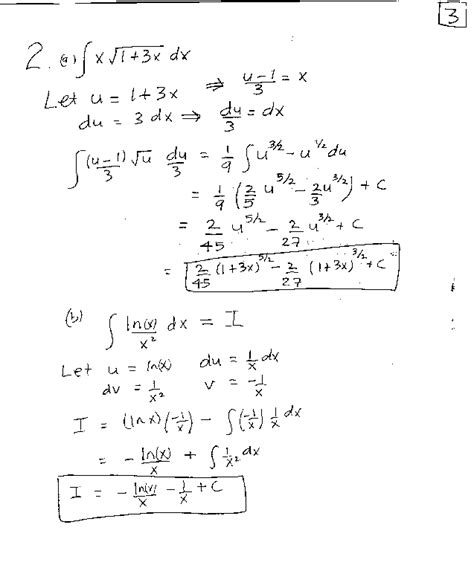 3
2. (a) ∫ x √(1+3x) dx
Let u = 1+3x ⇒ (u-1)/3 = x
du = 3 dx ⇒ du/3 = dx
∫ (u-1)/3 √u du/3 = 1/9 ∫ u^(3/2) - u^(1/2) du
= 1/9 (2/5 u^(5/2) - 2/3 u^(3/2)) + C
= 2/45 u^(5/2) - 2/27 u^(3/2) + C
= 2/45 (1+3x)^(5/2) - 2/27 (1+3x)^(3/2) + C
(b) ∫ ln(x)/x² dx = I
Let u = ln(x) du = 1/x dx
dv = 1/x² v = -1/x
I = (ln x)(-1/x) - ∫ (-1/x) 1/x dx
= - ln(x)/x + ∫ 1/x² dx
I = - ln(x)/x - 1/x + C